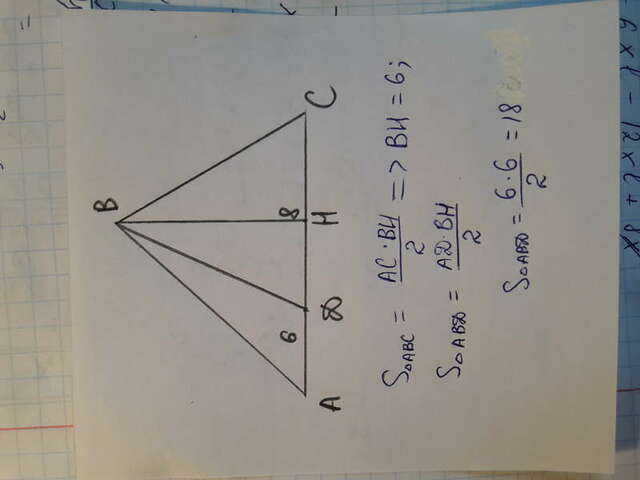 B
6
8
A D H C
S△ABC = AC·BH/2 => BH = 6;
S△ABD = AD·BH/2
S△ABD = 6·6/2 = 18